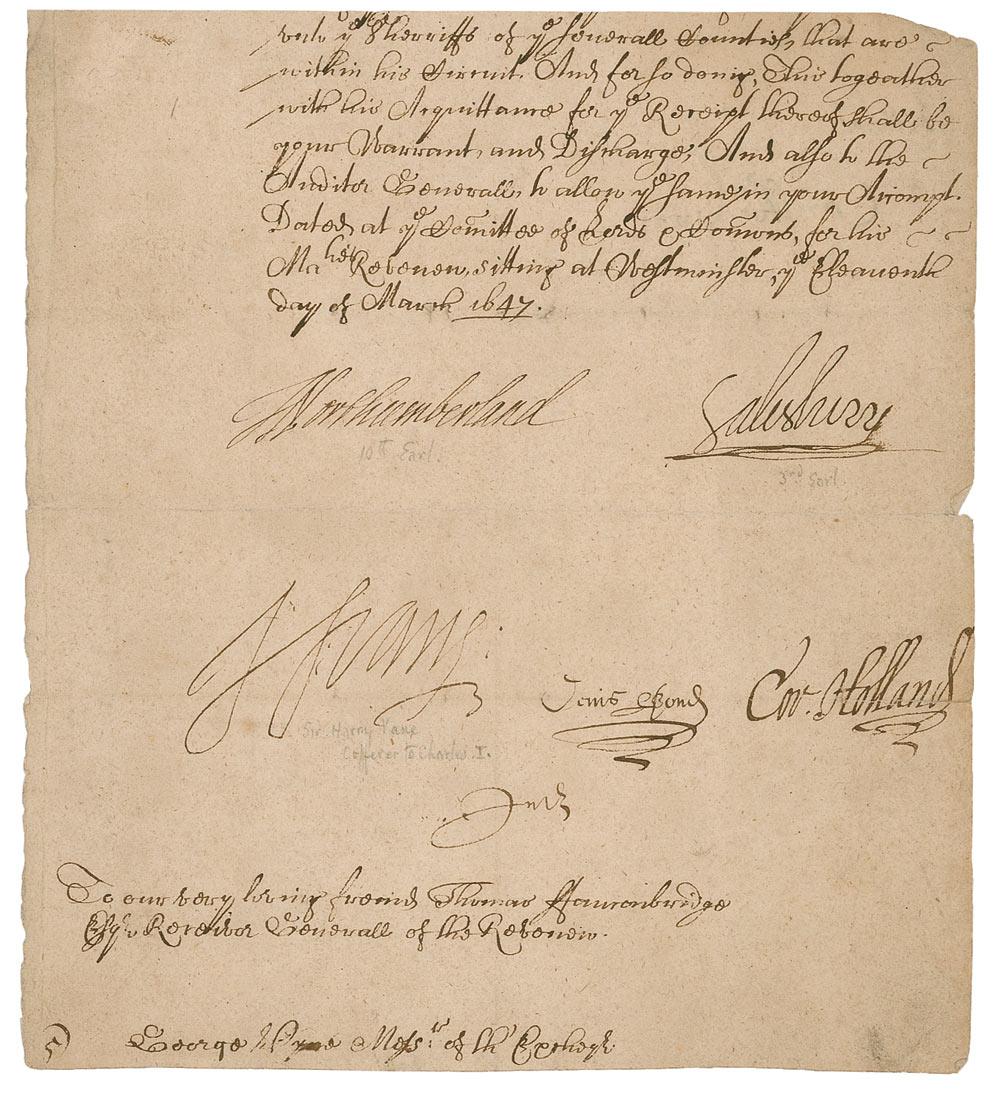 vnto yᵉ Sherriffs of yᵉ seuerall Counties, that are
within his Circuit. And for so doing, This togeather
with his Acquittance for yᵉ Receipt thereof shall be
your Warrant, and Discharge, And also to the
Auditor Generall, to allow yᵉ same, in your Accompt.
Dated at yᵉ Com̃ittee of Lords & Com̃ons, for his
Maᵗⁱᵉˢ Revenew, sitting at Westminster, yᵉ Eleauenth
day of March 1647.
Northumberland Salisbury
10th Earl
3rd Earl
H Vane
Denis Bond Cor. Holland
Sir Harry Vane
Cofferer to Charles I.
To our very loving freind Thomas Fauconbridge
Esqr. Receivor Generall of the Revenew.
5 George Messʳ of the Excheqr